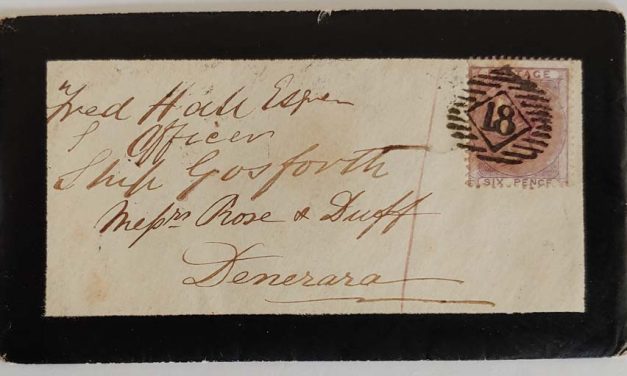 Fred Hall Esqre
Officer
Ship Gosforth
Messrs Rose & Duff
Demerara
POSTAGE
18
SIX PENCE